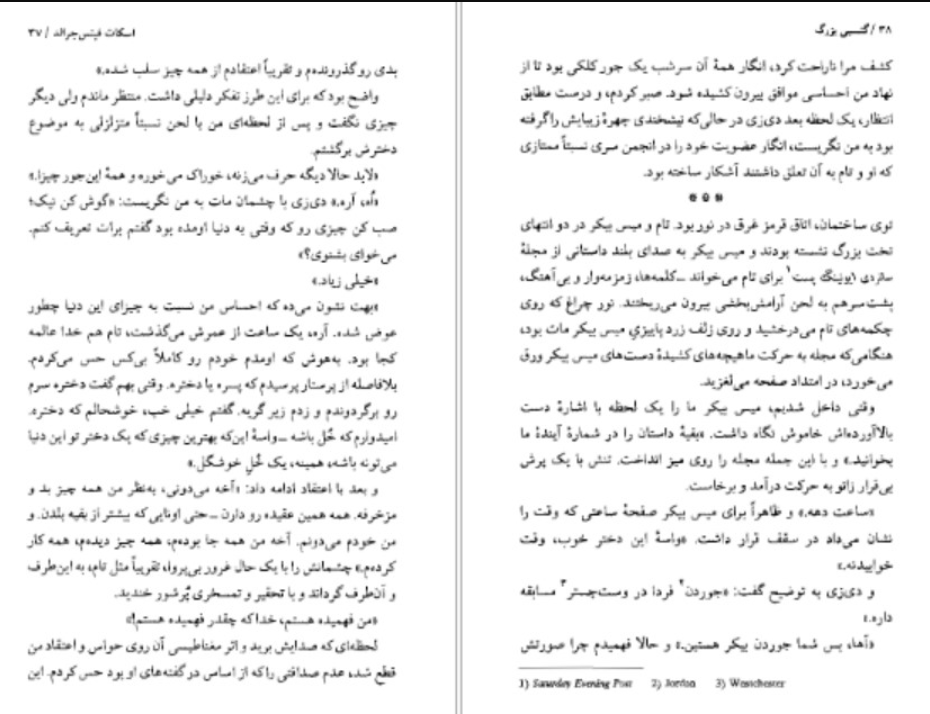 اسکات فیتس‌جرالد / ۳۷
بدی رو گذرونده‌م و تقریباً اعتقادم از همه چیز سلب شده.»
واضح بود که برای این طرز تفکر دلیلی داشت. منتظر ماندم ولی دیگر
چیزی نگفت و پس از لحظه‌ای من با لحن نسبتاً متزلزلی به موضوع
دخترش برگشتم.
«لابد حالا دیگه حرف می‌زنه، خوراک می‌خوره و همهٔ این‌جور چیزا.»
«اُه، آره.» دی‌زی با چشمان مات به من نگریست: «گوش کن نیک؛
صب کن چیزی رو که وقتی به دنیا اومده بود گفتم برات تعریف کنم.
می‌خوای بشنوی؟»
«خیلی زیاد.»
«بهت نشون می‌ده که احساس من نسبت به چیزای این دنیا چطور
عوض شده. آره، یک ساعت از عمرش می‌گذشت، تام هم خدا عالمه
کجا بود. به‌هوش که اومدم خودم رو کاملاً بی‌کس حس می‌کردم.
بلافاصله از پرستار پرسیدم که پسره یا دختره. وقتی بهم گفت دختره سرم
رو برگردوندم و زدم زیر گریه. گفتم خیلی خب، خوشحالم که دختره.
امیدوارم که خُل باشه ـ واسهٔ این‌که بهترین چیزی که یک دختر تو این دنیا
می‌تونه باشه، همینه، یک خُلِ خوشگل.»
و بعد با اعتقاد ادامه داد: «آخه می‌دونی، به‌نظر من همه چیز بد و
مزخرفه. همه همین عقیده رو دارن ـ حتی اونایی که بیشتر از بقیه بلدن. و
من خودم می‌دونم. آخه من همه جا بوده‌م، همه چیز دیده‌م، همه کار
کرده‌م.» چشمانش را با یک حال غرور بی‌پروا، تقریباً مثل تام، به این‌طرف
و آن‌طرف گرداند و با تحقیر و تمسخری پُرشور خندید.
«من فهمیده هستم، خدا که چقدر فهمیده هستم!»
لحظه‌ای که صدایش برید و اثر مغناطیسی آن روی حواس و اعتقاد من
قطع شد، عدم صداقتی را که از اساس در گفته‌های او بود حس کردم. این
۳۸ / گتسبی بزرگ
کشف مرا ناراحت کرد، انگار همهٔ آن سرشب یک جور کلکی بود تا از
نهاد من احساسی موافق بیرون کشیده شود. صبر کردم، و درست مطابق
انتظار، یک لحظه بعد دی‌زی در حالی‌که نیشخندی چهرهٔ زیبایش را گرفته
بود به من نگریست، انگار عضویت خود را در انجمن سری نسبتاً ممتازی
که او و تام به آن تعلق داشتند آشکار ساخته بود.
● ● ●
توی ساختمان، اتاق قرمز غرق در نور بود. تام و میس بیکر در دو انتهای
تخت بزرگ نشسته بودند و میس بیکر به صدای بلند داستانی از مجلهٔ
ساتردی ایونینگ پست۱ برای تام می‌خواند ـ کلمه‌ها، زمزمه‌وار و بی‌آهنگ،
پشت‌سرهم به لحن آرامش‌بخشی بیرون می‌ریختند. نور چراغ که روی
چکمه‌های تام می‌درخشید و روی زلف زرد پاییزیِ میس بیکر مات بود،
هنگامی‌که مجله به حرکت ماهیچه‌های کشیدهٔ دست‌های میس بیکر ورق
می‌خورد، در امتداد صفحه می‌لغزید.
وقتی داخل شدیم، میس بیکر ما را یک لحظه با اشارهٔ دست
بالاآورده‌اش خاموش نگاه داشت. «بقیهٔ داستان را در شمارهٔ آیندهٔ ما
بخوانید.» و با این جمله مجله را روی میز انداخت. تنش با یک پرش
بی‌قرار زانو به حرکت درآمد و برخاست.
«ساعت دهه.» و ظاهراً برای میس بیکر صفحهٔ ساعتی که وقت را
نشان می‌داد در سقف قرار داشت. «واسهٔ این دختر خوب، وقت
خوابیدنه.»
و دی‌زی به توضیح گفت: «جوردن۲ فردا در وست‌چستر۳ مسابقه
داره.»
«آها، پس شما جوردن بیکر هستین.» و حالا فهمیدم چرا صورتش
1) Saturday Evening Post 2) Jordan 3) Westchester